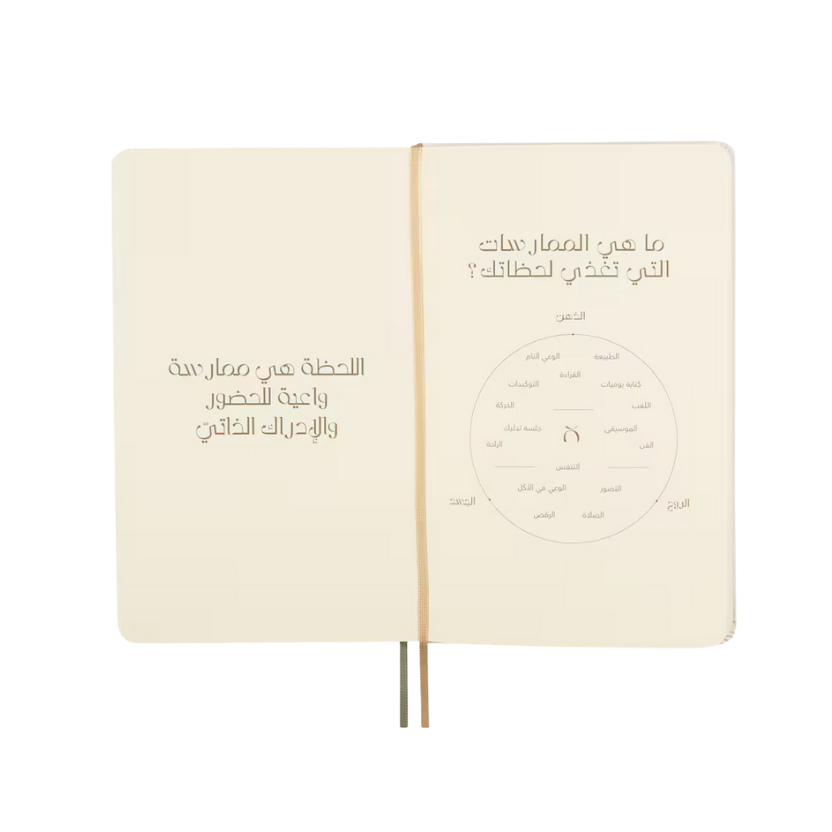 ما هي الممارسات
التي تغذي لحظاتك؟
الذهن
الطبيعة
الوعي التام
القراءة
كتابة يوميات
التوكيدات
اللعب
الحركة
الموسيقى
جلسة تدليك
الفن
الراحة
التنفس
التصور
الوعي في الأكل
الروح
الجسد
الصلاة
الرقص
اللحظة هي ممارسة
واعية للحضور
والإدراك الذاتيّ